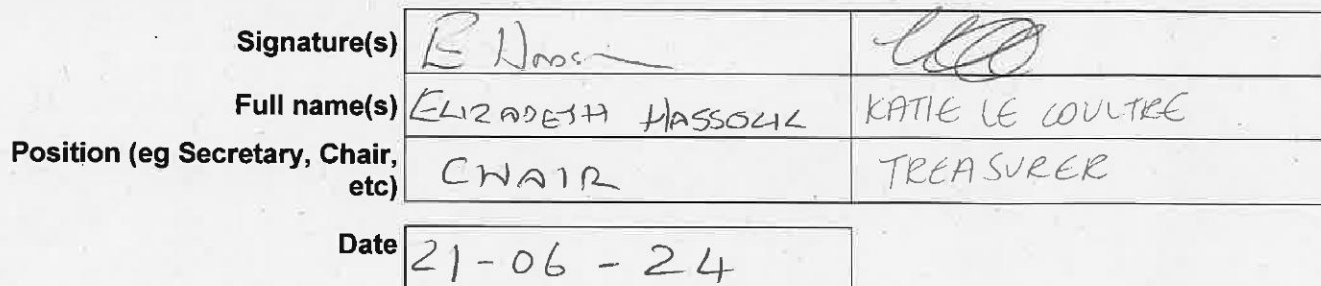 Signature(s)
Full name(s) ELIZABETH HASSOLIL KATIE LE COULTRE
Position (eg Secretary, Chair,
etc) CHAIR TREASURER
Date 21-06-24